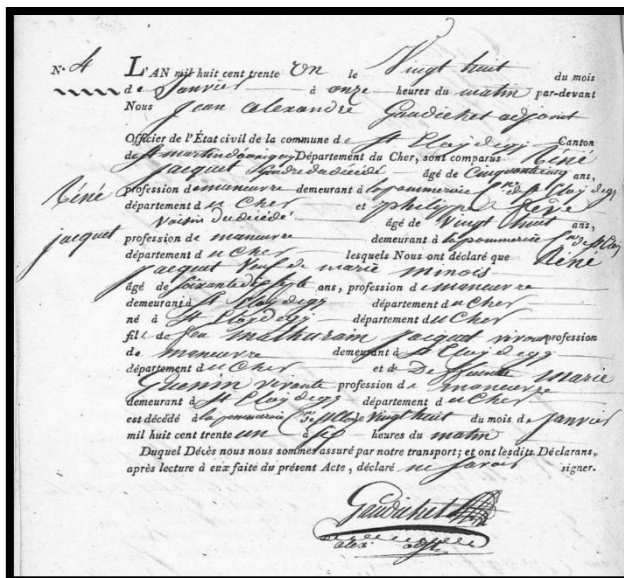 N.° 4 L'AN mil huit cent trente un le Vingt huit du mois
de Janvier à onze heures du matin par-devant
Nous Jean alexandre Gaudichet adjoint
Officier de l'État civil de la commune de St Eloy de gy Canton
de St martin d'auxigny Département du Cher, sont comparus Réné
jacquet décédé âgé de Cinquante cinq ans,
profession de manœuvre demeurant à la pommeraie St Eloy de gy
Réné
département du Cher et philippe
voisin du décédé âgé de Vingt huit ans,
jacquet
profession de manœuvre demeurant à la pommeraie
département du Cher lesquels Nous ont déclaré que Réné
jacquet veuf de marie minois
âgé de soixante ans, profession de manœuvre
demeurant à St Eloy de gy département du Cher
né à St Eloy de gy département du Cher
fils de feu mathurain jacquet vivant profession
de manœuvre demeurant à St Eloy de gy
département du Cher et de Défunte marie
Guenin vivante profession de manœuvre
demeurant à St Eloy de gy département du Cher
est décédé à la pommeraie le vingt huit du mois de Janvier
mil huit cent trente un à heures du matin
Duquel Décès nous nous sommes assuré par notre transport; et ont lesdits Déclarans,
après lecture à eux faite du présent Acte, déclaré ne savoir signer.
Gaudichet